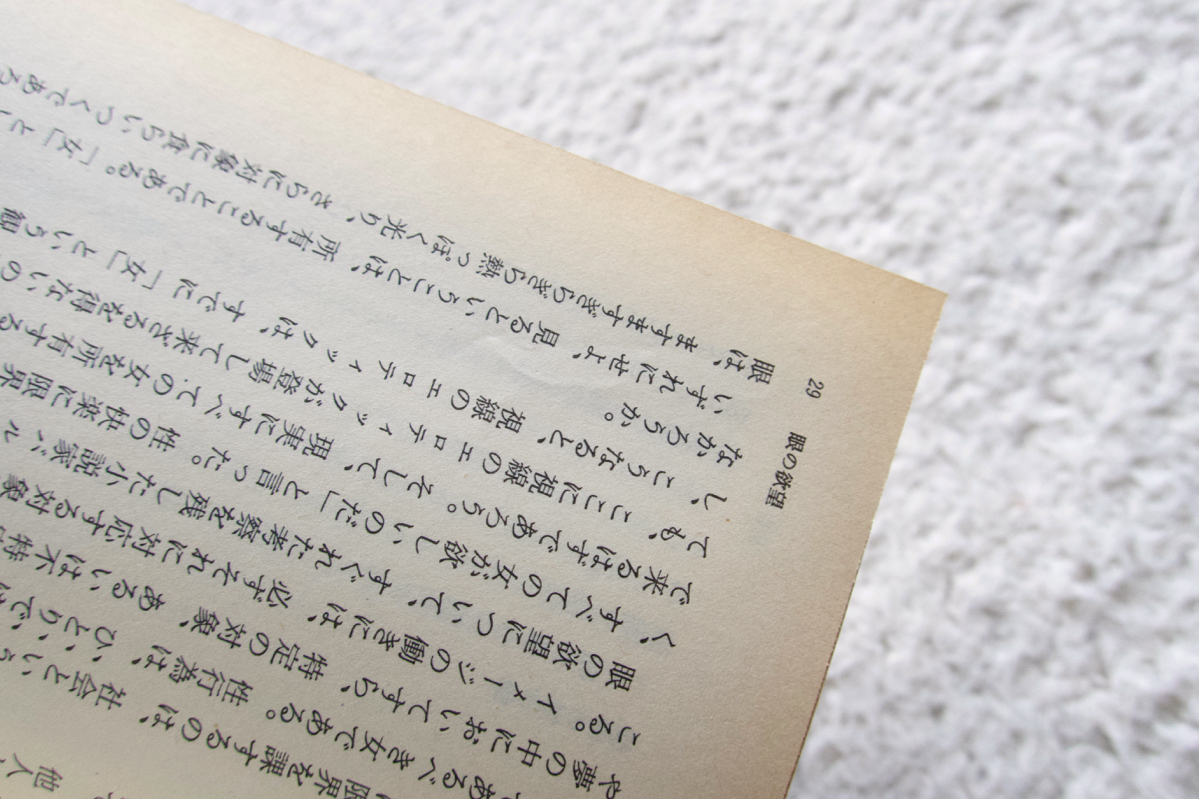 29 眼の欲望
他人
限界を課するのは、社会という
であるべき女である。性行為は、ひとりで
や夢の中においてすら、特定の対象、あるいは不特
ころ。イメージの働きには、必ずそれに対応する対象
眼の欲望について、すぐれた考察を残した小説家バル
く、すべての女が欲しいのだ」と言った。性の快楽に限界
で来るはずであろう。そして、現実にすべての女を所有する
ても、ここに視線のエロティックが登場して来ざるを得ないの
し、こうなると、視線のエロティックは、すでに「女」という観
なかろうか。
いずれにせよ、見るということは、所有することである。「女」とし
眼は、ますますぎらぎら熱っぽく光り、さらに対象に食らいつくであろ